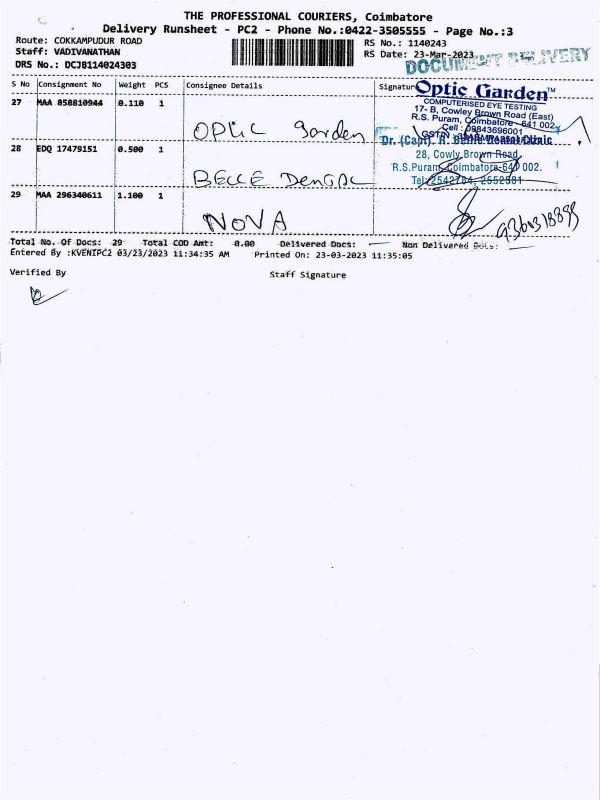 THE PROFESSIONAL COURIERS, Coimbatore
Delivery Runsheet - PC2 - Phone No.:0422-3505555 - Page No.:3
Route: COKKAMPUDUR ROAD
Staff: VADIVANATHAN
DRS No.: DCJB114024303
RS No.: 1140243
RS Date: 23-Mar-2023
DOCUMENT DELIVERY
S No Consignment No Weight PCS Consignee Details Signature
27 MAA 858810944 0.110 1 OPtic Garden
Optic Garden™
COMPUTERISED EYE TESTING
17- B, Cowley Brown Road (East)
R.S. Puram, Coimbatore - 641 002
Cell : 09843696001
GSTIN
28 EDQ 17479151 0.500 1 BELLE DENTAL
Dr. (Capt). R. Belle Dental Clinic
28, Cowly Brown Road
R.S.Puram, Coimbatore-641 002.
Tel: 2542784, 2552581
29 MAA 296340611 1.100 1 NOVA
Total No. Of Docs: 29 Total COD Amt: 0.00 Delivered Docs: Non Delivered Docs:
Entered By :KVENIPC2 03/23/2023 11:34:35 AM Printed On: 23-03-2023 11:35:05
Verified By Staff Signature